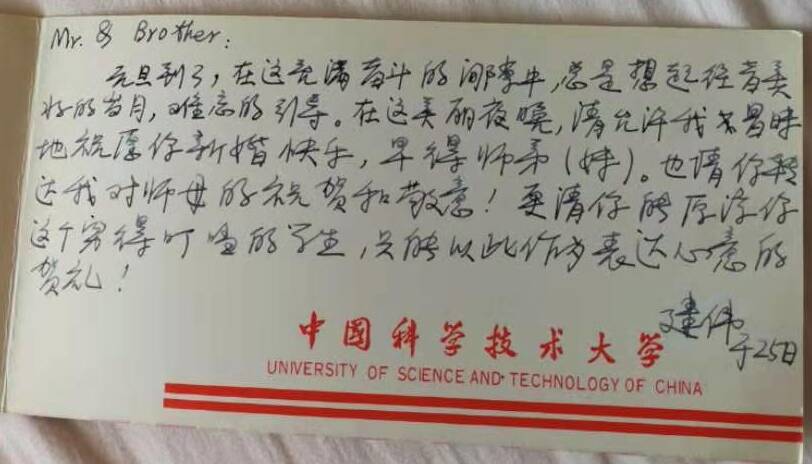 Mr. & Brother:
元旦到了，在这充满奋斗的间隙中，总是想起往昔美
好的岁月，难忘的引导。在这美丽夜晚，请允许我冒昧
地祝愿你新婚快乐，早得师弟（妹）。也请你转
达我对师母的祝贺和敬意！更请你能原谅你
这个穷得叮当的学生，只能以此作为表达心意的
贺礼！
建伟
于25日
中国科学技术大学
UNIVERSITY OF SCIENCE AND TECHNOLOGY OF CHINA